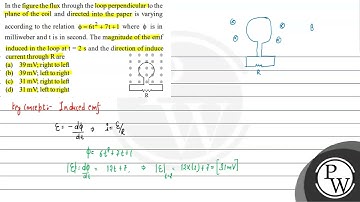 In the figure the flux through the loop perpendicular to the
plane of the coil and directed into the paper is varying
according to the relation ϕ = 6t² + 7t + 1 where ϕ is in
milliweber and t is in second. The magnitude of the emf
induced in the loop at t = 2 s and the direction of induce
current through R are
(a) 39 mV; right to left
(b) 39 mV; left to right
(c) 31 mV; right to left
(d) 31 mV; left to right
R
R
B
Key concept:- Induced emf
ε = -dϕ/dt ⇒ i = ε/R
ϕ = 6t² + 7t + 1
|ε| = dϕ/dt = 12t + 7 ⇒ |ε| t=2 = 12×(2) + 7 = [31mV]
PW